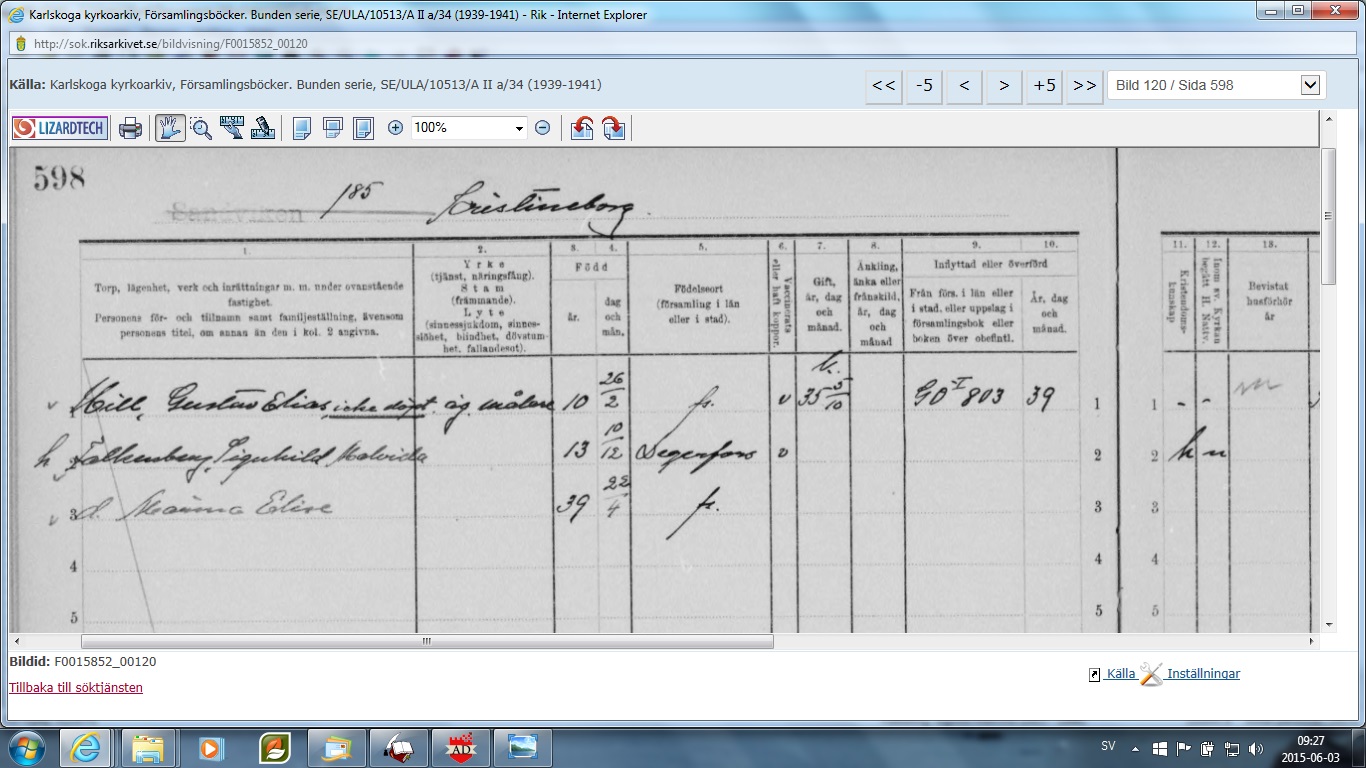 Karlskoga kyrkoarkiv, Församlingsböcker. Bunden serie, SE/ULA/10513/A II a/34 (1939-1941) - Rik - Internet Explorer
http://sok.riksarkivet.se/bildvisning/F0015852_00120
Källa: Karlskoga kyrkoarkiv, Församlingsböcker. Bunden serie, SE/ULA/10513/A II a/34 (1939-1941)
<< -5 < > +5 >> Bild 120 / Sida 598
LIZARDTECH 100%
598
Sandviken 185 Kristineborg.
1. 2. 3. 4. 5. 6. 7. 8. 9. 10. 11. 12. 13.
Torp, lägenhet, verk och inrättningar m. m. under ovanstående
fastighet.
Personens för- och tillnamn samt familjeställning, ävensom
personens titel, om annan än den i kol. 2 angivna.
Yrke
(tjänst, näringsfång).
Stam
(främmande).
Lyte
(sinnessjukdom, sinnes-
slöhet, blindhet, dövstum-
het, fallandesot).
Född
år.
dag
och
mån.
Födelseort
(församling i län
eller i stad).
Vaccinerats
eller haft koppor.
Gift,
år, dag
och
månad.
Änkling,
änka eller
frånskild,
år, dag
och
månad
Inflyttad eller överförd
Från förs. i län eller
i stad, eller uppslag i
församlingsbok eller
boken över obefintl.
År, dag
och
månad.
Kristendoms-
kunskap
Inom sv. Kyrkan
begått H. Nattv.
Bevistat
husförhör
år
v Hill, Gustav Elias, icke döpt. äg. målare 10 26/2 fs. v 35 5/10 GD I 803 39 1 1 - -
h Falkenberg, Signhild Malvida 13 10/12 Degerfors v 2 2
v 3 d. Marina Elise 39 22/4 fs. 3 3
4 4 4
5 5 5
Bildid: F0015852_00120
Källa Inställningar
Tillbaka till söktjänsten
AD
SV
09:27
2015-06-03